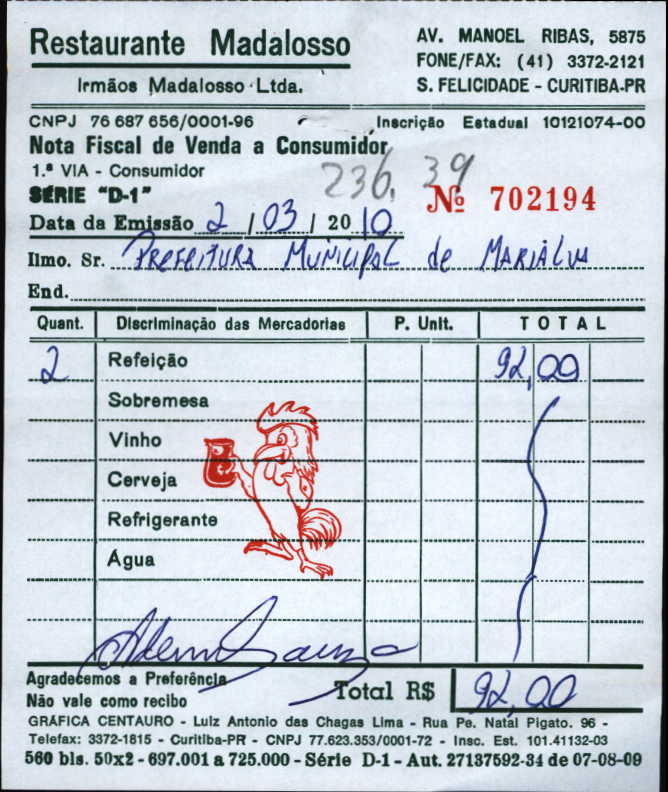 Restaurante Madalosso
Irmãos Madalosso Ltda.
AV. MANOEL RIBAS, 5875
FONE/FAX: (41) 3372-2121
S. FELICIDADE - CURITIBA-PR
CNPJ 76 687 656/0001-96 Inscrição Estadual 10121074-00
Nota Fiscal de Venda a Consumidor
1.ª VIA - Consumidor
236,39
SÉRIE "D-1" Nº 702194
Data da Emissão 2 / 03 / 2010
Ilmo. Sr. PREFEITURA MUNICIPAL de MARIALVA
End.
Quant. Discriminação das Mercadorias P. Unit. TOTAL
2 Refeição 92,00
Sobremesa
Vinho
Cerveja
Refrigerante
Água
Agradecemos a Preferência
Não vale como recibo
Total R$ 92,00
GRÁFICA CENTAURO - Luiz Antonio das Chagas Lima - Rua Pe. Natal Pigato. 96 -
Telefax: 3372-1815 - Curitiba-PR - CNPJ 77.623.353/0001-72 - Insc. Est. 101.41132-03
560 bls. 50x2 - 697.001 a 725.000 - Série D-1 - Aut. 27137592-34 de 07-08-09